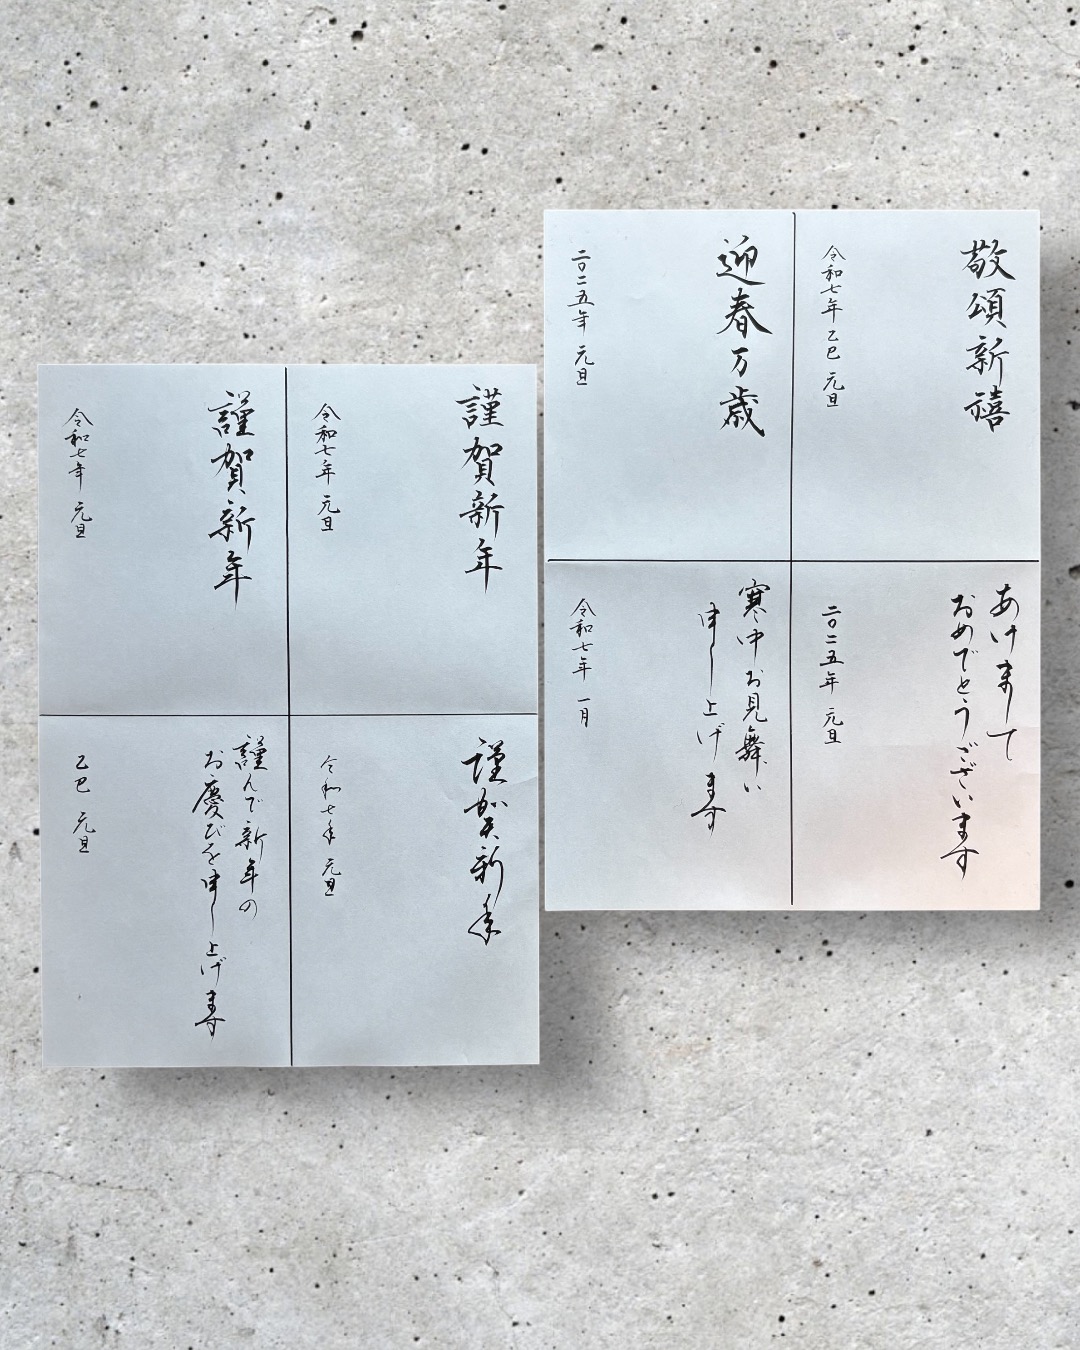 敬頌新禧
令和七年 乙巳 元旦
迎春万歳
二〇二五年 元旦
あけまして
おめでとうございます
二〇二五年 元旦
寒中お見舞い
申し上げます
令和七年 一月
謹賀新年
令和七年 元旦
謹賀新年
令和七年 元旦
謹賀新年
令和七年 元旦
謹んで新年の
お慶びを申し上げます
乙巳 元旦